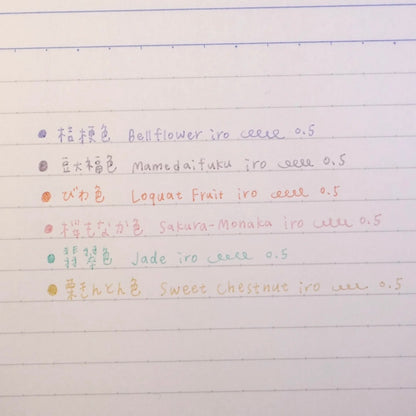 桔梗色 Bellflower iro 0.5
豆大福色 Mamedaifuku iro 0.5
びわ色 Loquat Fruit iro 0.5
桜もなか色 Sakura-Monaka iro 0.5
翡翠色 Jade iro 0.5
栗きんとん色 Sweet Chestnut iro 0.5